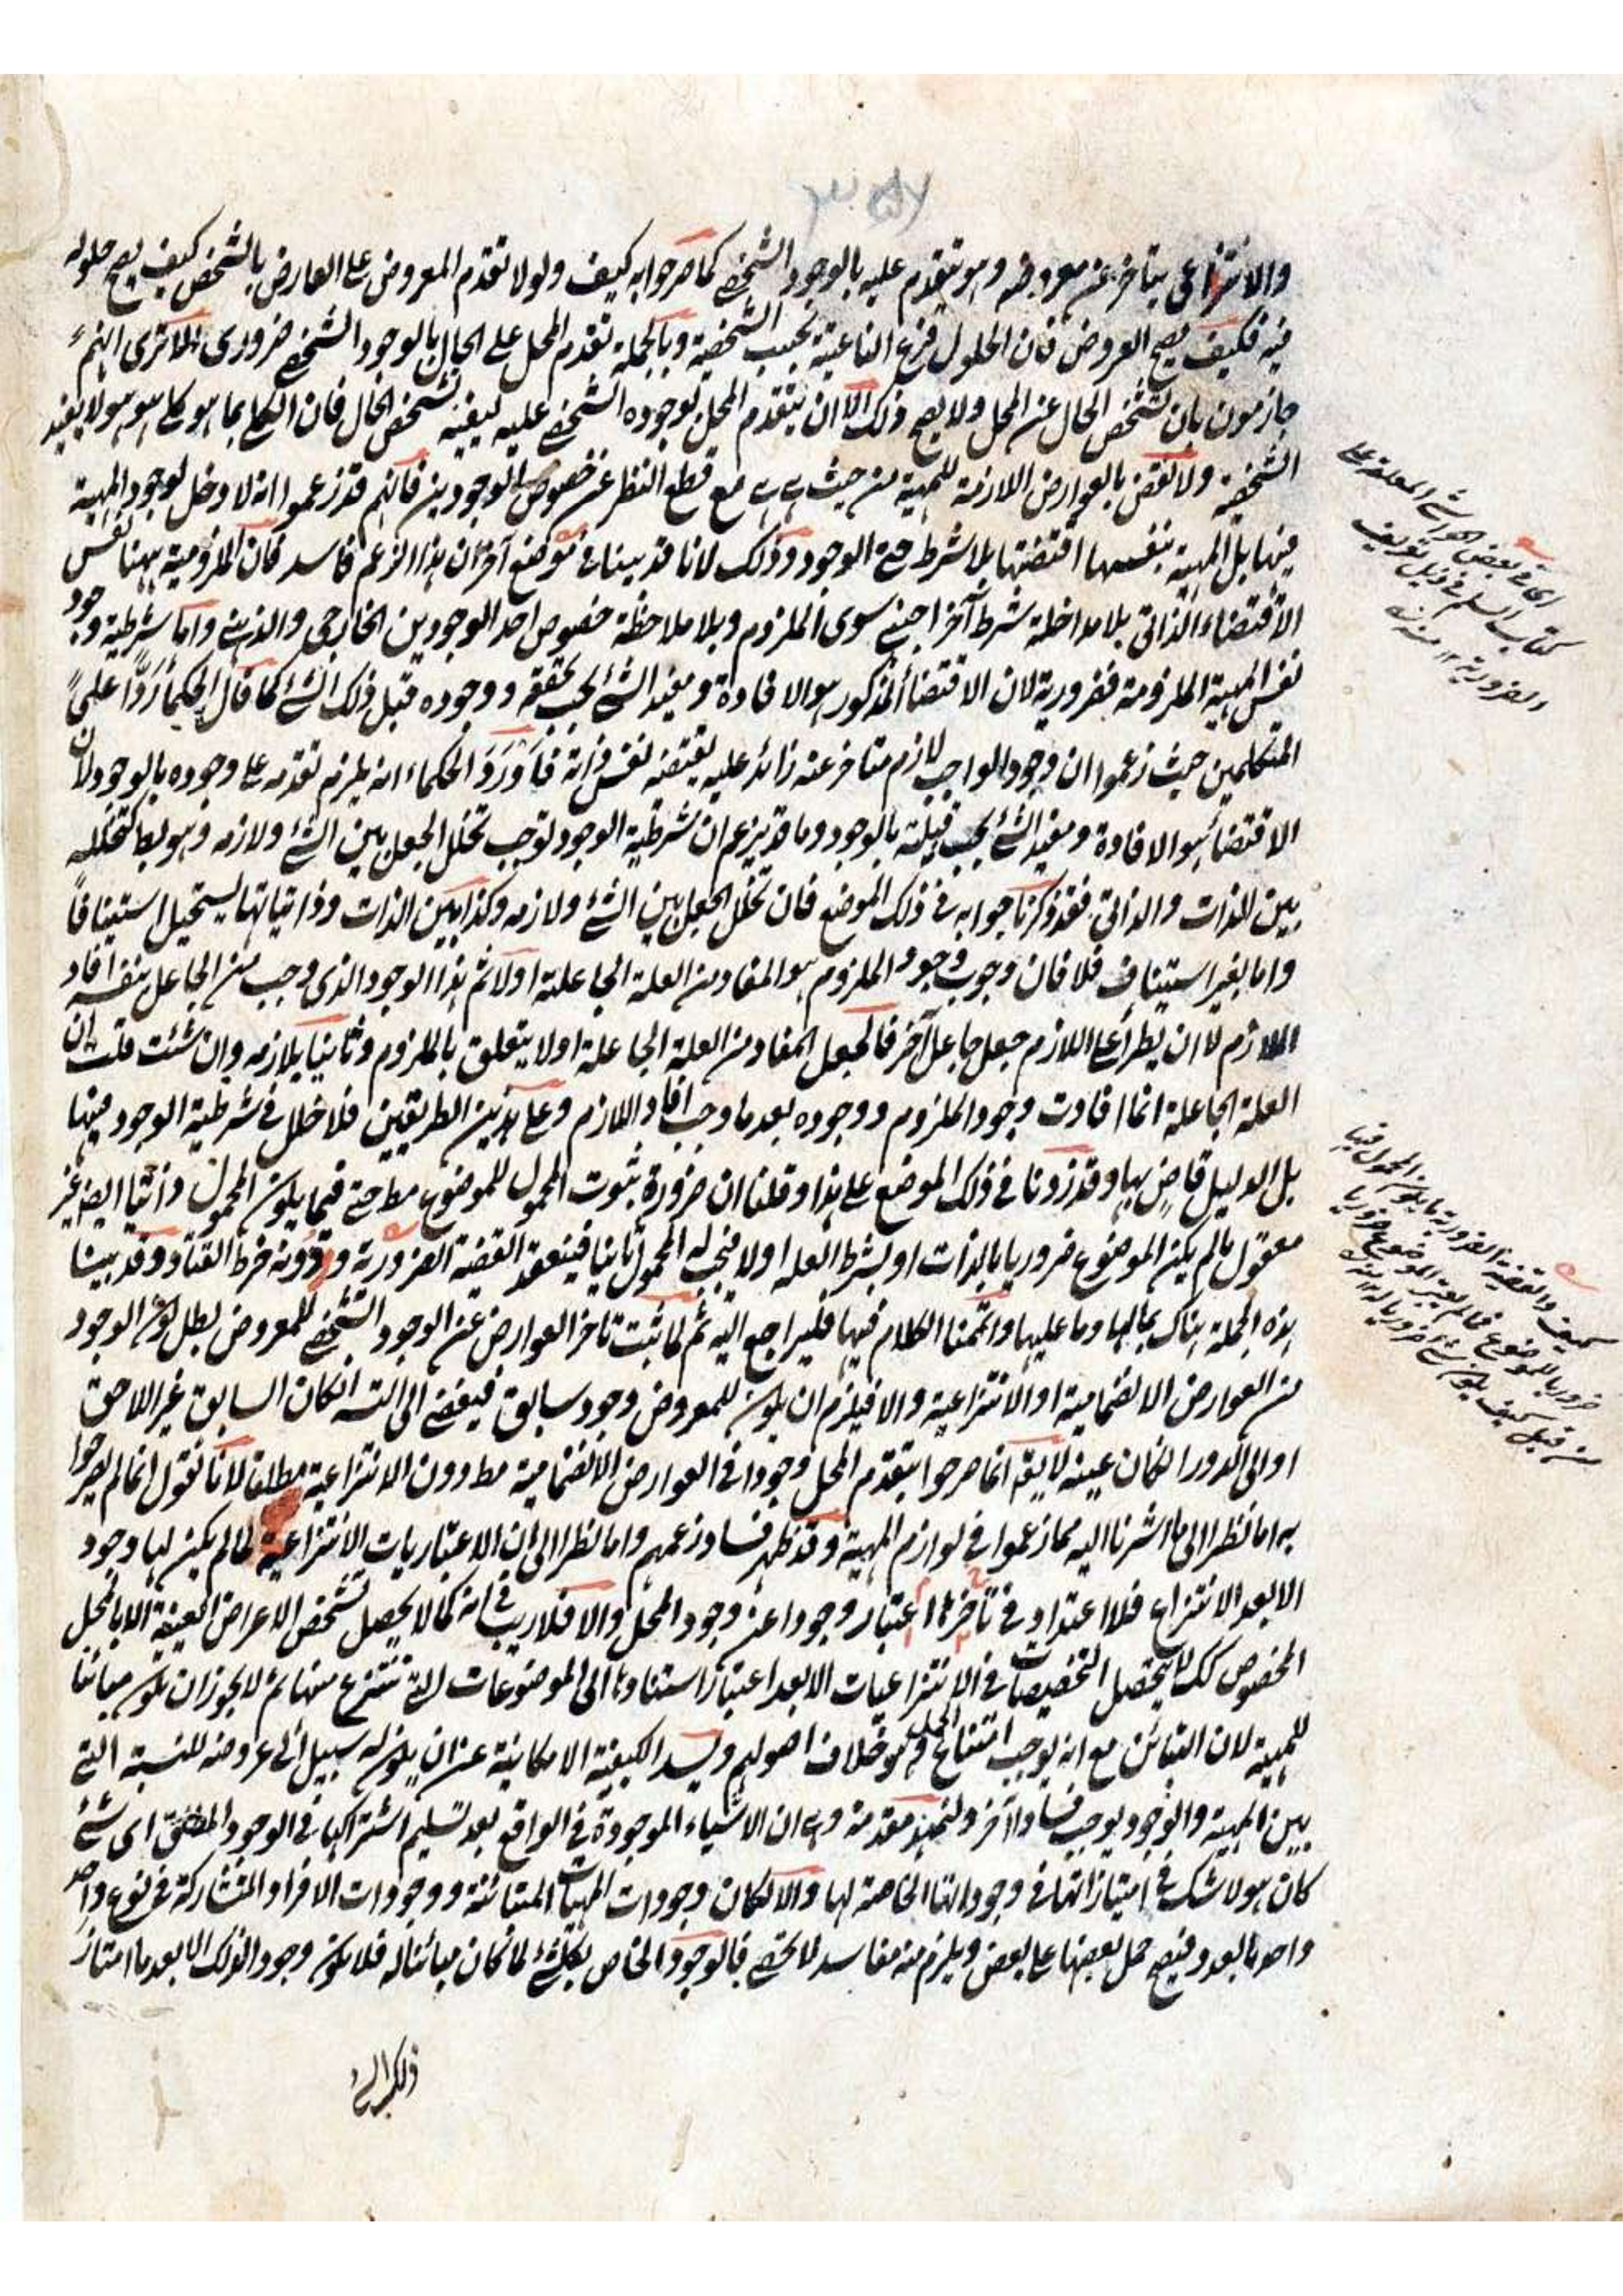 والانتزاعى يتأخر عن معروضه وهو يتقدم عليه بالوجود الشخصي كما صرحوا به كيف ولولا تقدم المعروض على العارض بالشخص كيف يصح حلوله
فيه فكيف يصح العروض فان الحلول فرع الناعتية بحسب الشخصية وبالجملة تقدم المحل على الحال بالوجود الشخصي ضرورى الا ترى انهم
جازمون بان تشخص الحال عن المحل ولا يصح ذلك الا ان يتقدم المحل بوجوده الشخصي عليه ليفيد تشخص الحال فان الكلي بما هو كلي هو هو لا يفيد
الشخصية ولا نقض بالعوارض اللازمة للمهية من حيث هي هي مع قطع النظر عن خصوص الوجودين فانهم قد زعموا انه لا دخل لوجود المهية
فيها بل المهية بنفسها اقتضتها بلا شرطية الوجود وذلك لانا قد بينا في موضع آخر ان هذا الزعم فاسد فان الملزومية ههنا نفس
الاقتضاء الذاتى بلا مداخلة شرط آخر اجنبي سوى الملزوم وبلا ملاحظة خصوص احد الوجودين الخارجى والذهني واما شرطية وجود
نفس المهية الملزومة فضرورية لان الاقتضاء المذكور هو الافادة ومفيد الشئ يجب تحققه ووجوده قبل ذلك الشئ كما قال الحكماء ردا على
المتكلمين حيث زعموا ان وجود الواجب لازم متاخر عنه زائد عليه يقتضيه نفس ذاته فاورد الحكماء انه يلزم تقدمه على وجوده بالوجود لان
الاقتضاء هو الافادة ومفيد الشئ يجب قبليته بالوجود وما قد يزعم ان شرطية الوجود توجب تخلل الجعل بين الشئ ولازمه وهو بط كتخلله
بين الذات والذاتى فقد ذكرنا جوابه في ذلك الموضع فان تخلل الجعل بين الشئ ولازمه وكذا بين الذات وذاتياتها يستحيل استينافا
واما بغير استيناف فلا فان وجوب وجود الملزوم هو المفاد من العلة الجاعلة اولا ثم هذا الوجود الذى وجب من الجاعل بنفسه افاد
اللازم لا ان يطرأ على اللازم جعل جاعل آخر فالجعل المفاد من العلة الجاعلة اولا يتعلق بالملزوم وثانيا بلازمه وان شئت قلت ان
العلة الجاعلة انما افادت وجود الملزوم ووجوده بعد ما وجب افاد اللازم وعلى هذين الطريقين فلا خلل في شرطية الوجود فيها
بل الدليل قاض بها وقد زدنا في ذلك الموضع على هذا وقلنا ان ضرورة ثبوت المحمول للموضوع مط حتى فيما يكون المحمول ذاتيا ايضا غير
معقول ما لم يكن الموضوع ضروريا بالذات او بشرط العلة اولا فيجب له المحمول ثانيا فينعقد القضية الضرورية ودونه خرط القتاد وقد بينا
هذه الجملة هناك بمالها وما عليها واتممنا الكلام فيها فليراجع اليه ثم لما ثبت تاخر العوارض عن الوجود الشخصي للمعروض بطل كون الوجود
من العوارض الانضمامية او الانتزاعية والا فيلزم ان يكون للمعروض وجود سابق فيفضي الى التسلسل ان كان السابق غير اللاحق
او الى الدور ان كان عينه لا يقال انما صرحوا بتقدم المحل وجودا في العوارض الانضمامية مط دون الانتزاعية مطلقا لانا نقول انما لم يصرحوا
به اما نظرا الى ما اشرنا اليه مما زعموا في لوازم المهية وقد ظهر فساد زعمهم واما نظرا الى ان الاعتباريات الانتزاعية لما لم يكن لها وجود
الا بعد الانتزاع فلا اعتداد في تأخرها اعتبار وجودها عن وجود المحل والا فلا ريب في انه كما لا يحصل تشخص الاعراض المعينة الا بالمحل
المخصوص كك لا يتحصل التخصيصات في الانتزاعيات الا بعد اعتبار استنادها الى الموضوعات التي تنتزع منها ثم لا يجوز ان يكون مبائنا
للمهية لان التبائن مع انه يوجب امتناع الحمل وهو خلاف اصولهم ويسد الكيفية الامكانية عن ان يكون له سبيل الى عروضه للنسبة التي
بين المهية والوجود يوجب فسادا آخر ولنمهد مقدمة وهي ان الاشياء الموجودة في الواقع بعد تسليم اشتراكها في الوجود المطلق اى شئ
كان هو لا شك في امتيازاتها في وجوداتها الخاصة لها والا لكان وجودات المهيات المتبائنة ووجودات الافراد المتشاركة في نوع واحد
واحدا بالعدد فيصح حمل بعضها على بعض ويلزم منه مفاسد لا تحصى فالوجود الخاص بكل شئ لما كان مبائنا له فلا يكون وجود الذلك الا بعد ما امتاز
ذلك الشئ
اى في بعض الحواشى المعلقة على
كتاب السلم في ذيل تعريف
الضرورية ١٢ منه
كيف والقضية الضرورية ما يكون المحمول فيها
ضروريا للموضوع فما لم يعتبر الموضوع ضروريا
من قبل كيف يكون شئ ضروريا له ١٢ منه